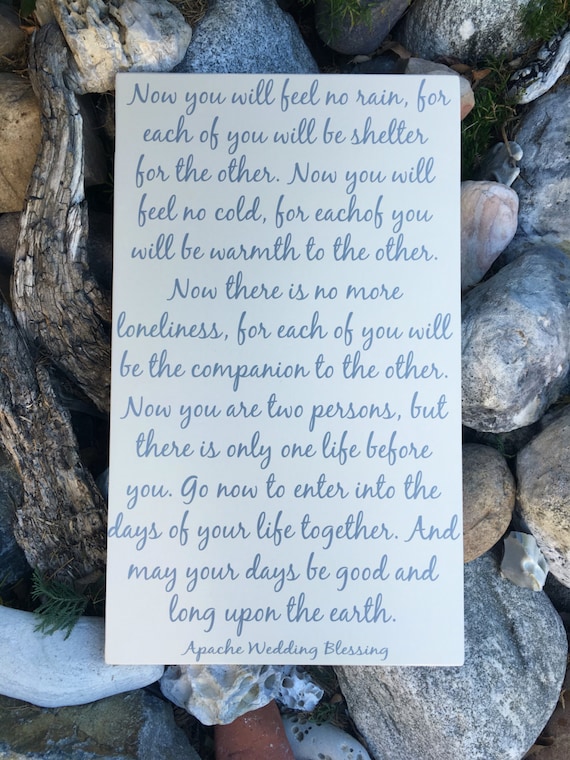 Now you will feel no rain, for
each of you will be shelter
for the other. Now you will
feel no cold, for eachof you
will be warmth to the other.
Now there is no more
loneliness, for each of you will
be the companion to the other.
Now you are two persons, but
there is only one life before
you. Go now to enter into the
days of your life together. And
may your days be good and
long upon the earth.
Apache Wedding Blessing